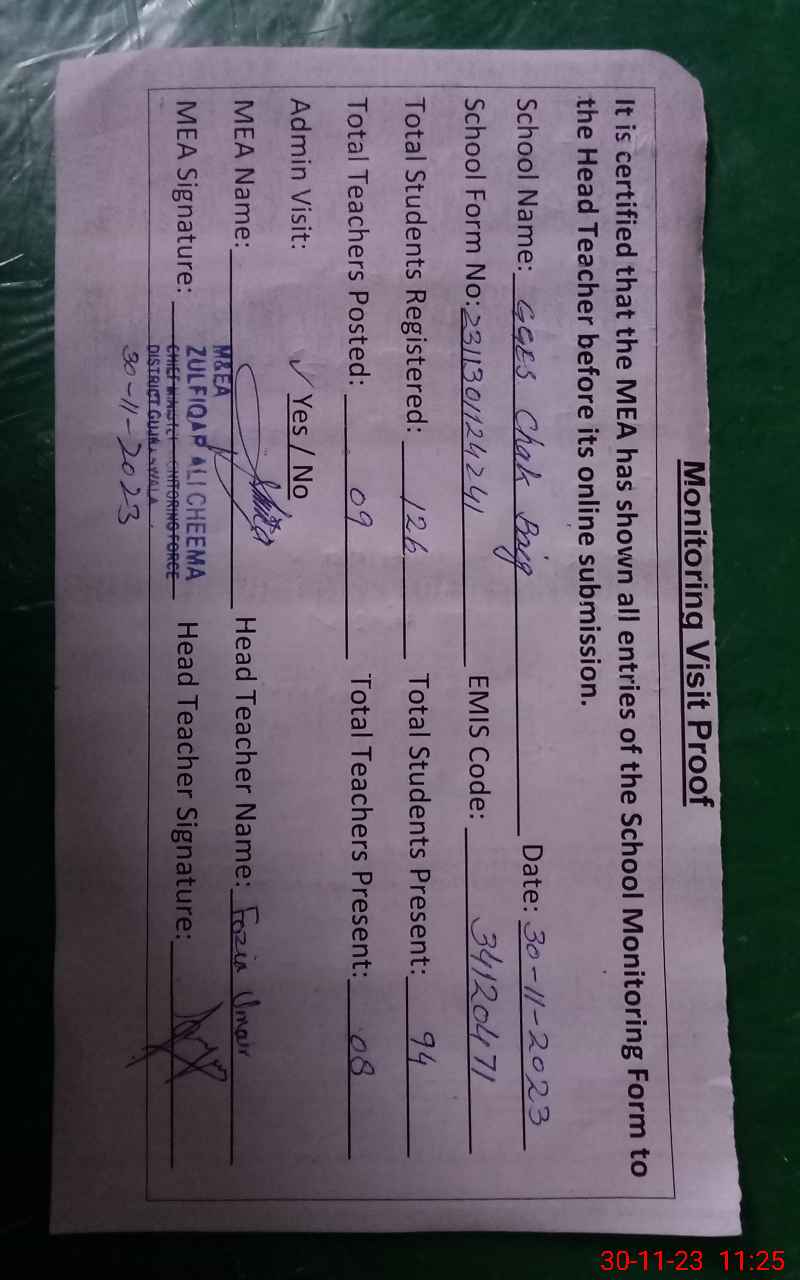 Monitoring Visit Proof
It is certified that the MEA has shown all entries of the School Monitoring Form to
the Head Teacher before its online submission.
School Name: GGES Chak Baig Date: 30-11-2023
School Form No: 231130112424 EMIS Code: 34120471
Total Students Registered: 126 Total Students Present: 94
Total Teachers Posted: 09 Total Teachers Present: 08
Admin Visit: ✓ Yes / No
MEA Name: Head Teacher Name: Fozia Umair
MEA Signature: Head Teacher Signature:
M&EA
ZULFIQAR ALI CHEEMA
CHIEF MINISTER MONITORING FORCE
DISTRICT GUJRANWALA
30-11-2023
30-11-23 11:25